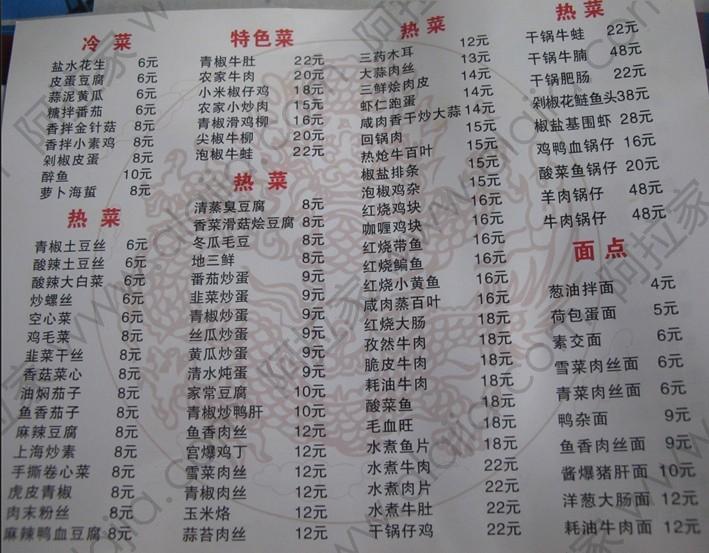 冷菜
盐水花生 6元
皮蛋豆腐 6元
蒜泥黄瓜 6元
糖拌番茄 6元
香拌金针菇 8元
香拌小素鸡 8元
剁椒皮蛋 8元
醉鱼 10元
萝卜海蜇 8元
热菜
青椒土豆丝 6元
酸辣土豆丝 6元
酸辣大白菜 6元
炒螺丝 6元
空心菜 6元
鸡毛菜 8元
韭菜干丝 8元
香菇菜心 8元
油焖茄子 8元
鱼香茄子 8元
麻辣豆腐 8元
上海炒素 8元
手撕卷心菜 8元
虎皮青椒 8元
肉末粉丝 8元
麻辣鸭血豆腐 8元
特色菜
青椒牛肚 22元
农家牛肉 20元
小米椒仔鸡 18元
农家小炒肉 15元
青椒滑鸡柳 16元
尖椒牛柳 20元
泡椒牛蛙 22元
热菜
清蒸臭豆腐 8元
香菜滑菇烩豆腐 8元
冬瓜毛豆 8元
地三鲜 8元
番茄炒蛋 9元
韭菜炒蛋 9元
青椒炒蛋 9元
丝瓜炒蛋 9元
黄瓜炒蛋 9元
清水炖蛋 9元
家常豆腐 10元
青椒炒鸭肝 10元
鱼香肉丝 12元
宫爆鸡丁 12元
雪菜肉丝 12元
青椒肉丝 12元
玉米烙 12元
蒜苔肉丝 12元
热菜
三药木耳 12元
大蒜肉丝 13元
三鲜烩肉皮 14元
虾仁跑蛋 14元
咸肉香干炒大蒜14元
回锅肉 15元
热炝牛百叶 15元
椒盐排条 15元
泡椒鸡杂 15元
红烧鸡块 16元
咖喱鸡块 16元
红烧带鱼 16元
红烧鳊鱼 16元
红烧小黄鱼 16元
咸肉蒸百叶 16元
红烧大肠 18元
孜然牛肉 18元
脆皮牛肉 18元
耗油牛肉 18元
酸菜鱼 18元
毛血旺 18元
水煮鱼片 18元
水煮牛肉 22元
水煮肉片 22元
水煮牛肚 22元
干锅仔鸡 22元
热菜
干锅牛蛙 22元
干锅牛腩 48元
干锅肥肠 22元
剁椒花鲢鱼头38元
椒盐基围虾 28元
鸡鸭血锅仔 16元
酸菜鱼锅仔 20元
羊肉锅仔 48元
牛肉锅仔 48元
面点
葱油拌面 4元
荷包蛋面 5元
素交面 6元
雪菜肉丝面 6元
青菜肉丝面 6元
鸭杂面 9元
鱼香肉丝面 9元
酱爆猪肝面 10元
洋葱大肠面 12元
耗油牛肉面 12元